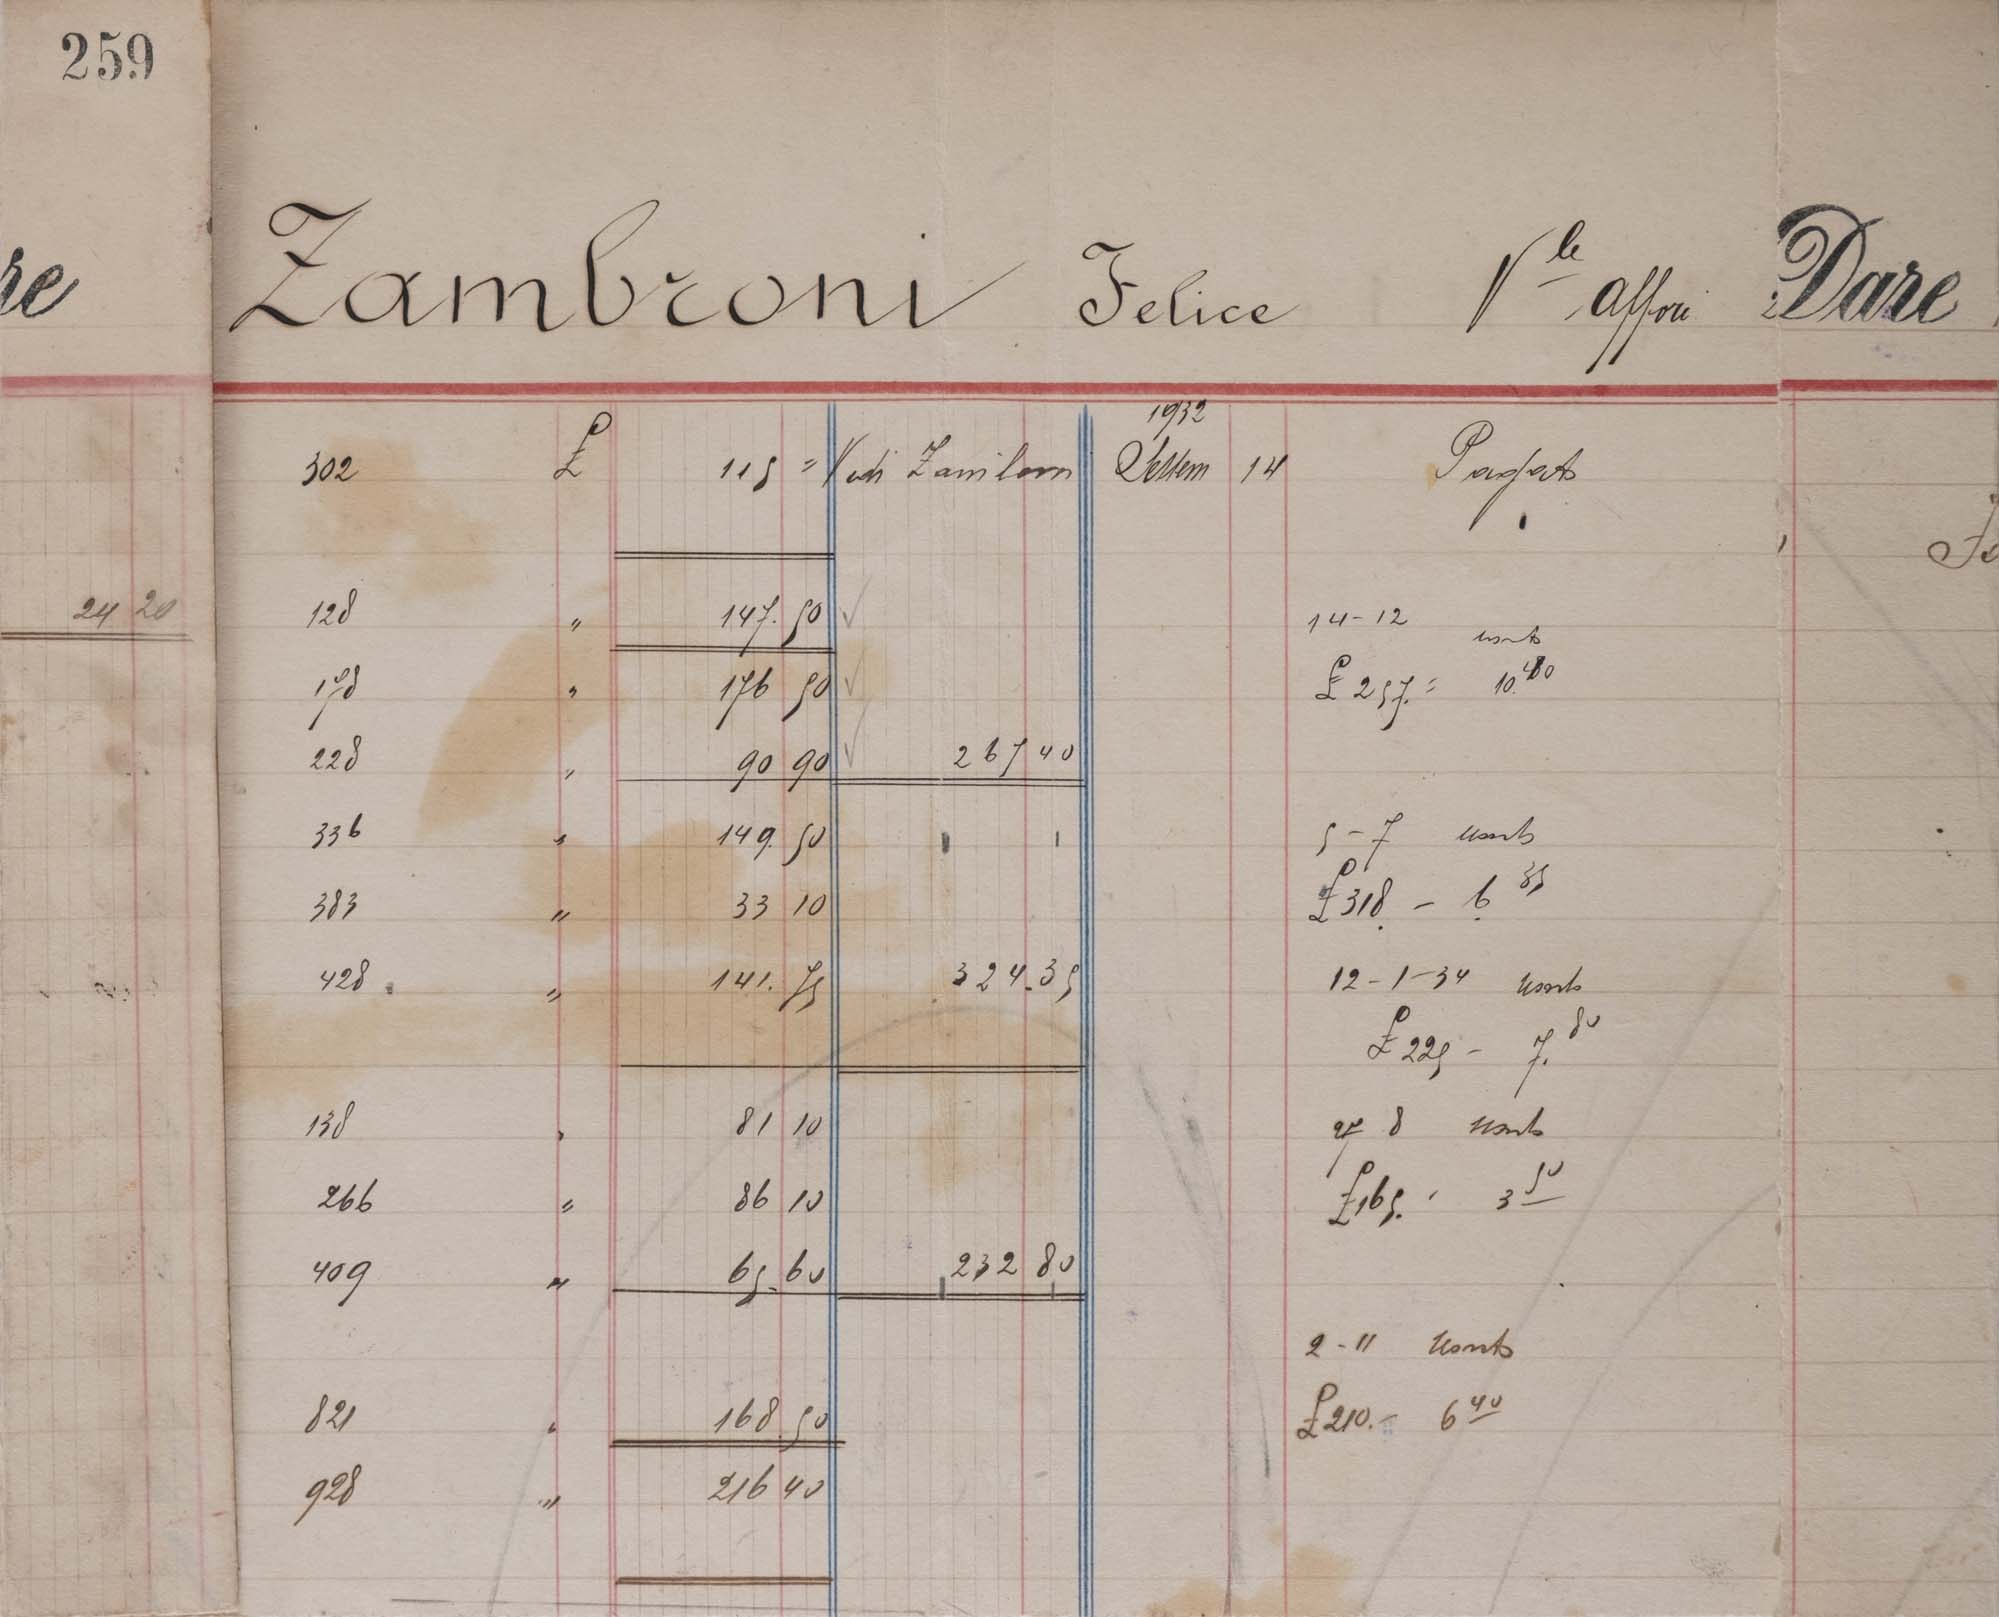 259
re Zambroni Felice Vle Affori Dare
1932
302 £ 115 = Vedi Settem 14 Pagato
24 20 128 " 147.50 14-12 sconto
178 " 176 50 £ 257.= 10.80
228 " 90 90 267 40
336 " 149.50 5-7 sconto
383 " 33 10 £318. - 6.35
428 " 141.75 324.35 12-1-34 sconto
£ 225 - 7.80
138 " 81 10 27 8 sconto
266 " 86 10 £165. 3 50
409 " 65.60 232 80
2-11 sconto
821 " 168.50 £210.- 6 40
928 " 216 40